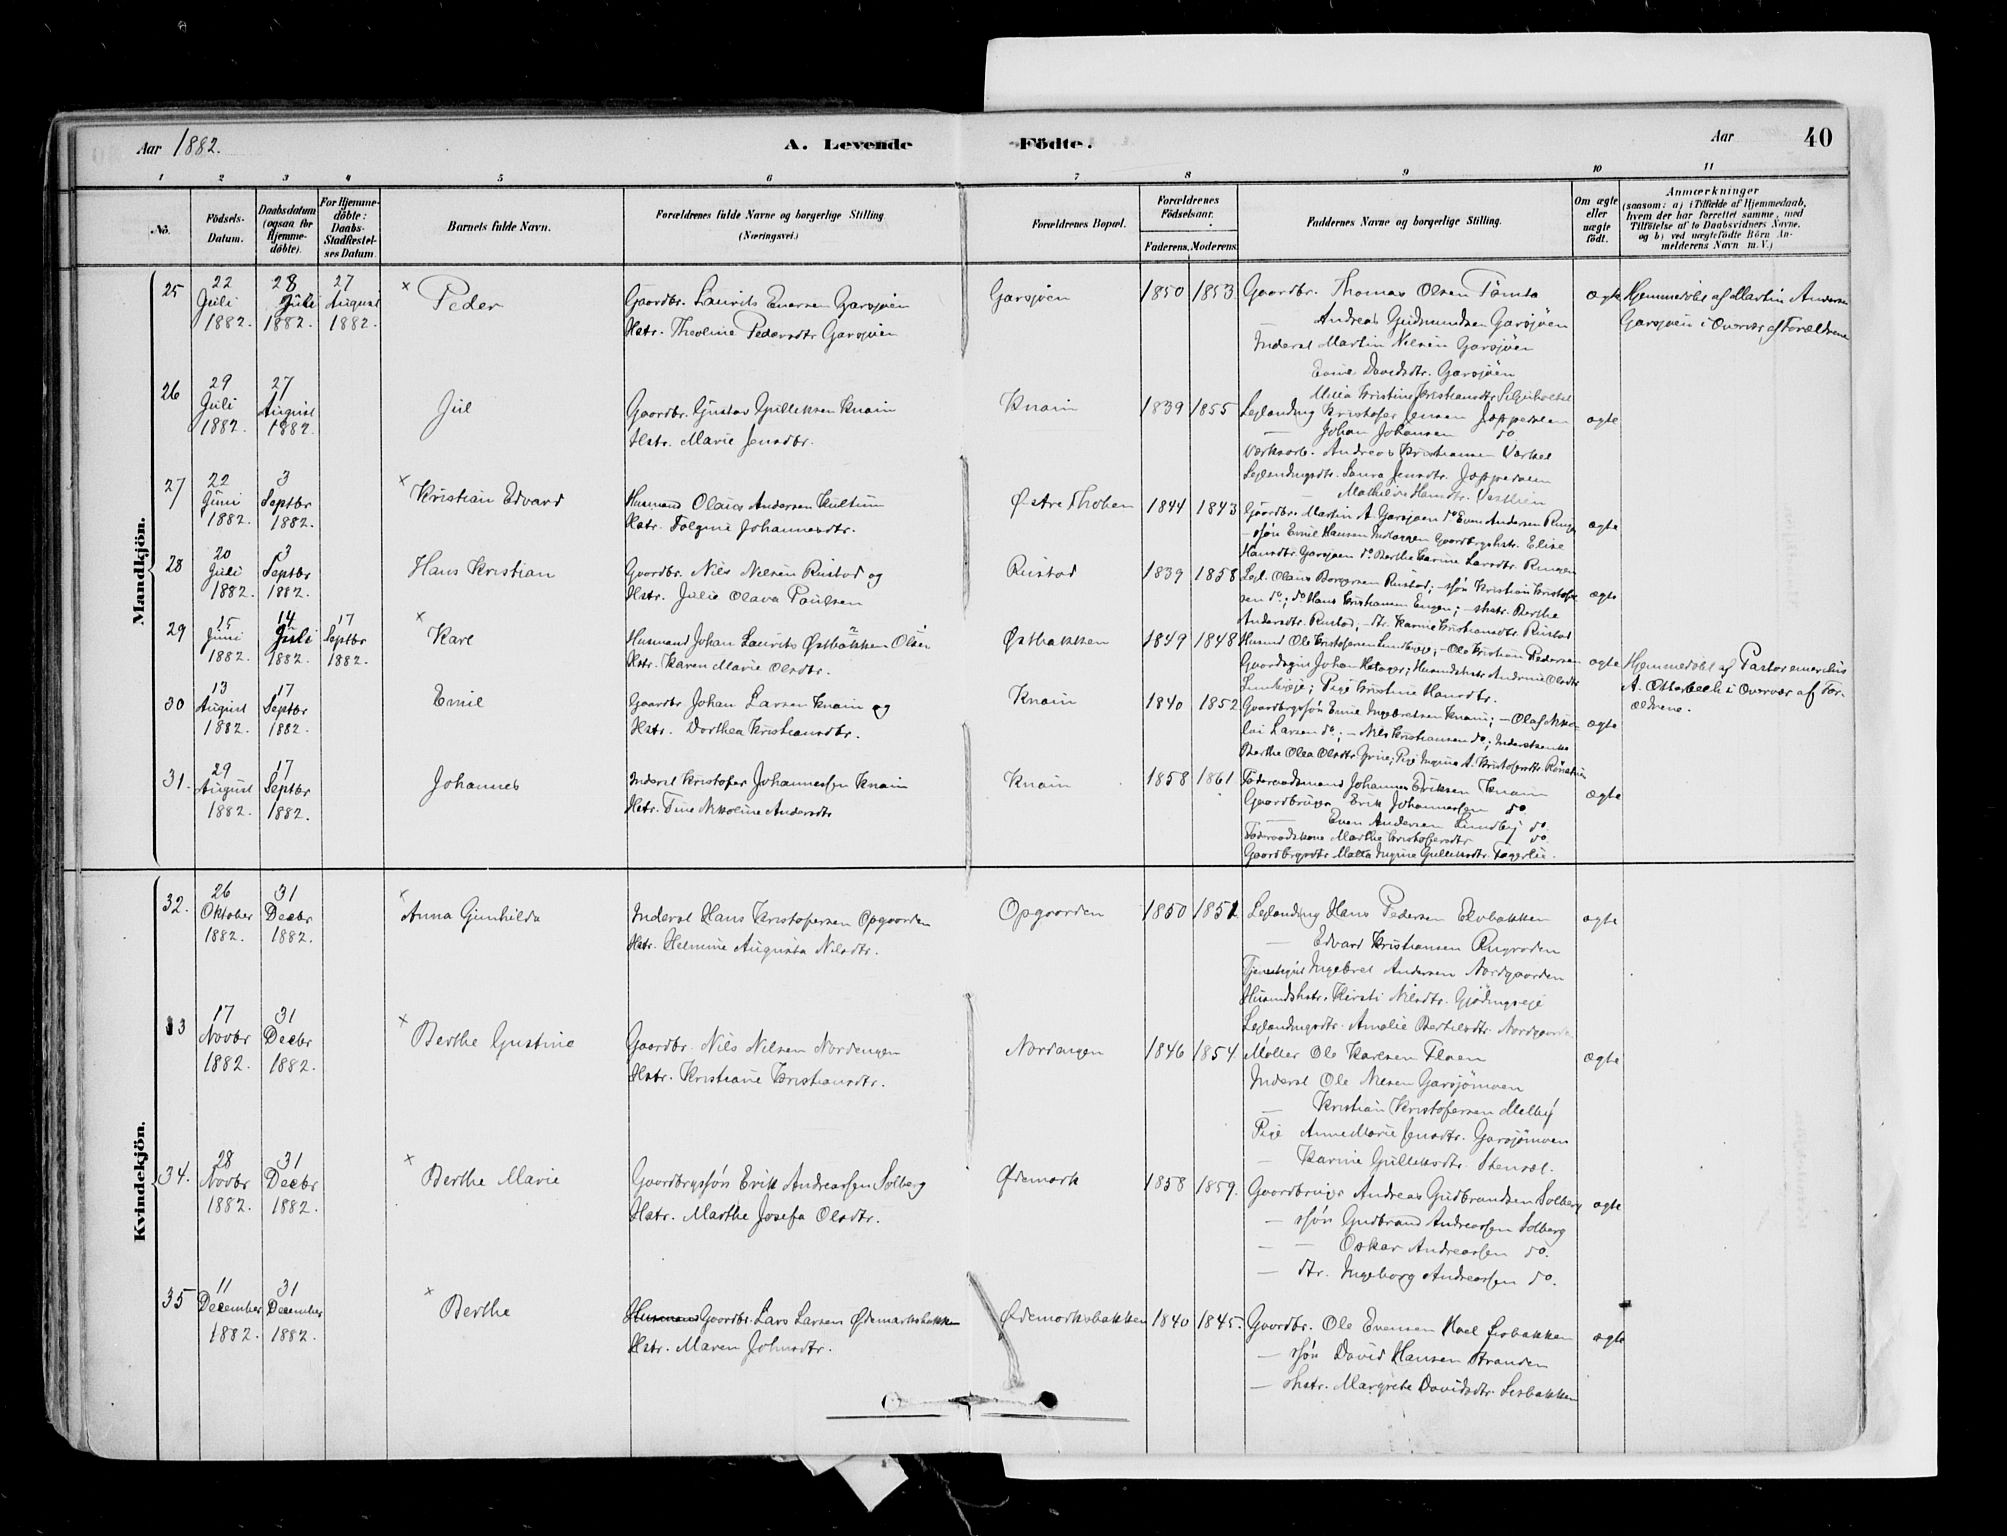 Aar 1882.
A. Levende Födte.
Aar
40
1 2 3 4 5 6 7 8 9 10 11
No.
Födsels-Datum.
Daabsdatum (ogsaa for Hjemme-döbte).
For Hjemme-döbte: Daabs-Stadfæstel-ses Datum.
Barnets fulde Navn.
Forældrenes fulde Navne og borgerlige Stilling (Næringsvei.)
Forældrenes Bopæl.
Forældrenes Födselsaar.
Faderens. Moderens.
Faddernes Navne og borgerlige Stilling.
Om ægte eller uægte födt.
Anmærkninger
(saasom: a) i Tilfælde af Hjemmedaab, hvem der har forrettet samme, med Tilföielse af to Daabsvidners Navne, og b) ved uægtefödte Börn An-melderens Navn m. V.)
Mandkjön.
25 22 Juli 1882. 28 Juli 1882. 27 August 1882. × Peder
Gaardbr. Laurits Enersen Garsjøen
Hstr. Theoline Pedersdtr Garsjøen
Garsjøen 1850 1853
Gaardbr. Thomas Olsen Tömta
Andreas Gudmundsen Garsjøen
Inderst Martin Nilsen Garsjøen
Davidsdtr. Garsjøen
Kristine Kristiansdtr
ægte
Hjemmedöbt af Martin Andersen
Garsjøen i Overvær af Forældrene
26 29 Juli 1882. 27 August 1882. Jul
Gaardbr. Gustav Gulliksen Knain
Hstr. Marie Jensdtr.
Knain 1839 1855
Leilænding Kristofer Jensen Joppersen
— Johan Johansen do
Værksarb. Andreas Kristiansen
Leilændingsdtr. Laura Jensdtr. Joppersen
Mathilde Hansdtr.
ægte
27 22 Juni 1882. 3 Septbr 1882. × Kristian Edvard
Husmand Olaus Andersen Kultum
Hstr. Tolgine Johannesdtr.
Østre Thoben 1844 1843
Gaardbr. Martin A. Garsjøen do Even Andersen
— sön Emil Hansen Gaardbrgshstr. Elise
Hansdtr. Garsjøen do Berthe Karine Larsdtr. Rungen
ægte
28 20 Juli 1882. 3 Septbr 1882. Hans Kristian
Gaardbr. Nils Nilsen Rustad og
Hstr. Julie Olava Paulsen
Rustad 1839 1858
Leil. Olaus Borgersen Rustad; — sön Kristian Kristof-
sen do; do Hans Kristiansen Engen; — shstr. Berthe
Andersdtr. Rustad; — dtr. Karine Kristiansdtr. Rustad
ægte
29 15 Juni 1882. 14 Juli 1882. 17 Septbr 1882. × Karl
Husmand Johan Laurits Østbakken Olsen
Hstr. Karen Marie Olsdtr.
Østbakken 1849 1848
Husmd Ole Kristofersen Lundbyeje; — Ole Kristian Pedersen
Johan Husmdshstr. Andrine Olsdtr
Lundbyeje; Pige Kristine Hansdtr.
ægte
Hjemmedöbt af Pastor emeritus
A. Otterbech i Overvær af For-
ældrene.
30 13 August 1882. 17 Septbr 1882. Emil
Gaardbr Johan Larsen Knain og
Hstr. Dorthea Kristiansdtr.
Knain 1840 1852
Gaardbrgssön Emil Ingebretsen Knain; — Olaf Niko-
lai Larsen do; — Nils Kristiansen do;
Berthe Olea Olsdtr Pige Ingine A. Kristofersdtr
ægte
31. 29 August 1882. 17 Septbr 1882. Johannes
Inderst Kristofer Johannessen Knain
Hstr. Tine Nikoline Andersdtr
Knain 1858 1861
Föderaadsmand Johannes Eriksen Knain
Gaardbruger Erik Johannessen do
— Even Andersen Lundby do.
Föderaadskone Marthe Kristofersdtr do.
Gaardbrgsdtr Malla Ingine Gulliksdtr. Fagerlie.
ægte
Kvindekjön.
32. 26 Oktober 1882. 31 Decbr 1882. × Anna Gunhilda
Inderst Hans Kristofersen Opgaarden
Hstr. Helmine Augusta Nilsdtr.
Opgaarden 1850 1851
Leilænding Hans Pedersen Elvbakken
— Edvard Kristiansen
Tjenestegut Ingebret Andersen Nordgaarden
Husmdshstr. Kirsti Nilsdtr.
Leilændingsdtr. Amalie Bertilsdtr.
ægte
33 17 Novbr 1882. 31 Decbr 1882. × Berthe Gustine
Gaardbr. Nils Nilsen Nordengen
Hstr. Kristiane Kristiansdtr.
Nordengen 1846 1854
Møller Ole Karlsen Floen
Inderst Ole Nilsen Garsjömoen
— Kristian Kristofersen Melby
Pige Anne Marie Jensdtr. Garsjömoen
— Karine Gulliksdtr.
ægte
34. 28 Novbr 1882. 31 Decbr 1882. × Berthe Marie
Gaardbrgssön Erik Andreassen Solberg
Hstr. Marthe Josefa Olsdtr.
Ødemark 1858 1859.
Gaardbruger Andreas Gudbrandsen Solberg
— sön Gudbrand Andreassen Solberg
— — Oskar Andreassen do.
— dtr. Ingeborg Andreassen do.
ægte
35 11 December 1882. 31 December 1882. × Berthe
Husmand Gaardbr. Lars Larsen Ødemarksbakken
Hstr. Maren Johnsdtr.
Ødemarksbakken 1840 1845.
Gaardbr. Ole Evensen
— sön David Hansen Stranden
— shstr. Margrete Davidsdtr. Lisbakken
ægte